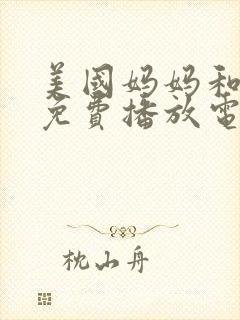 美國妈妈和
免費播放電
枕山舟